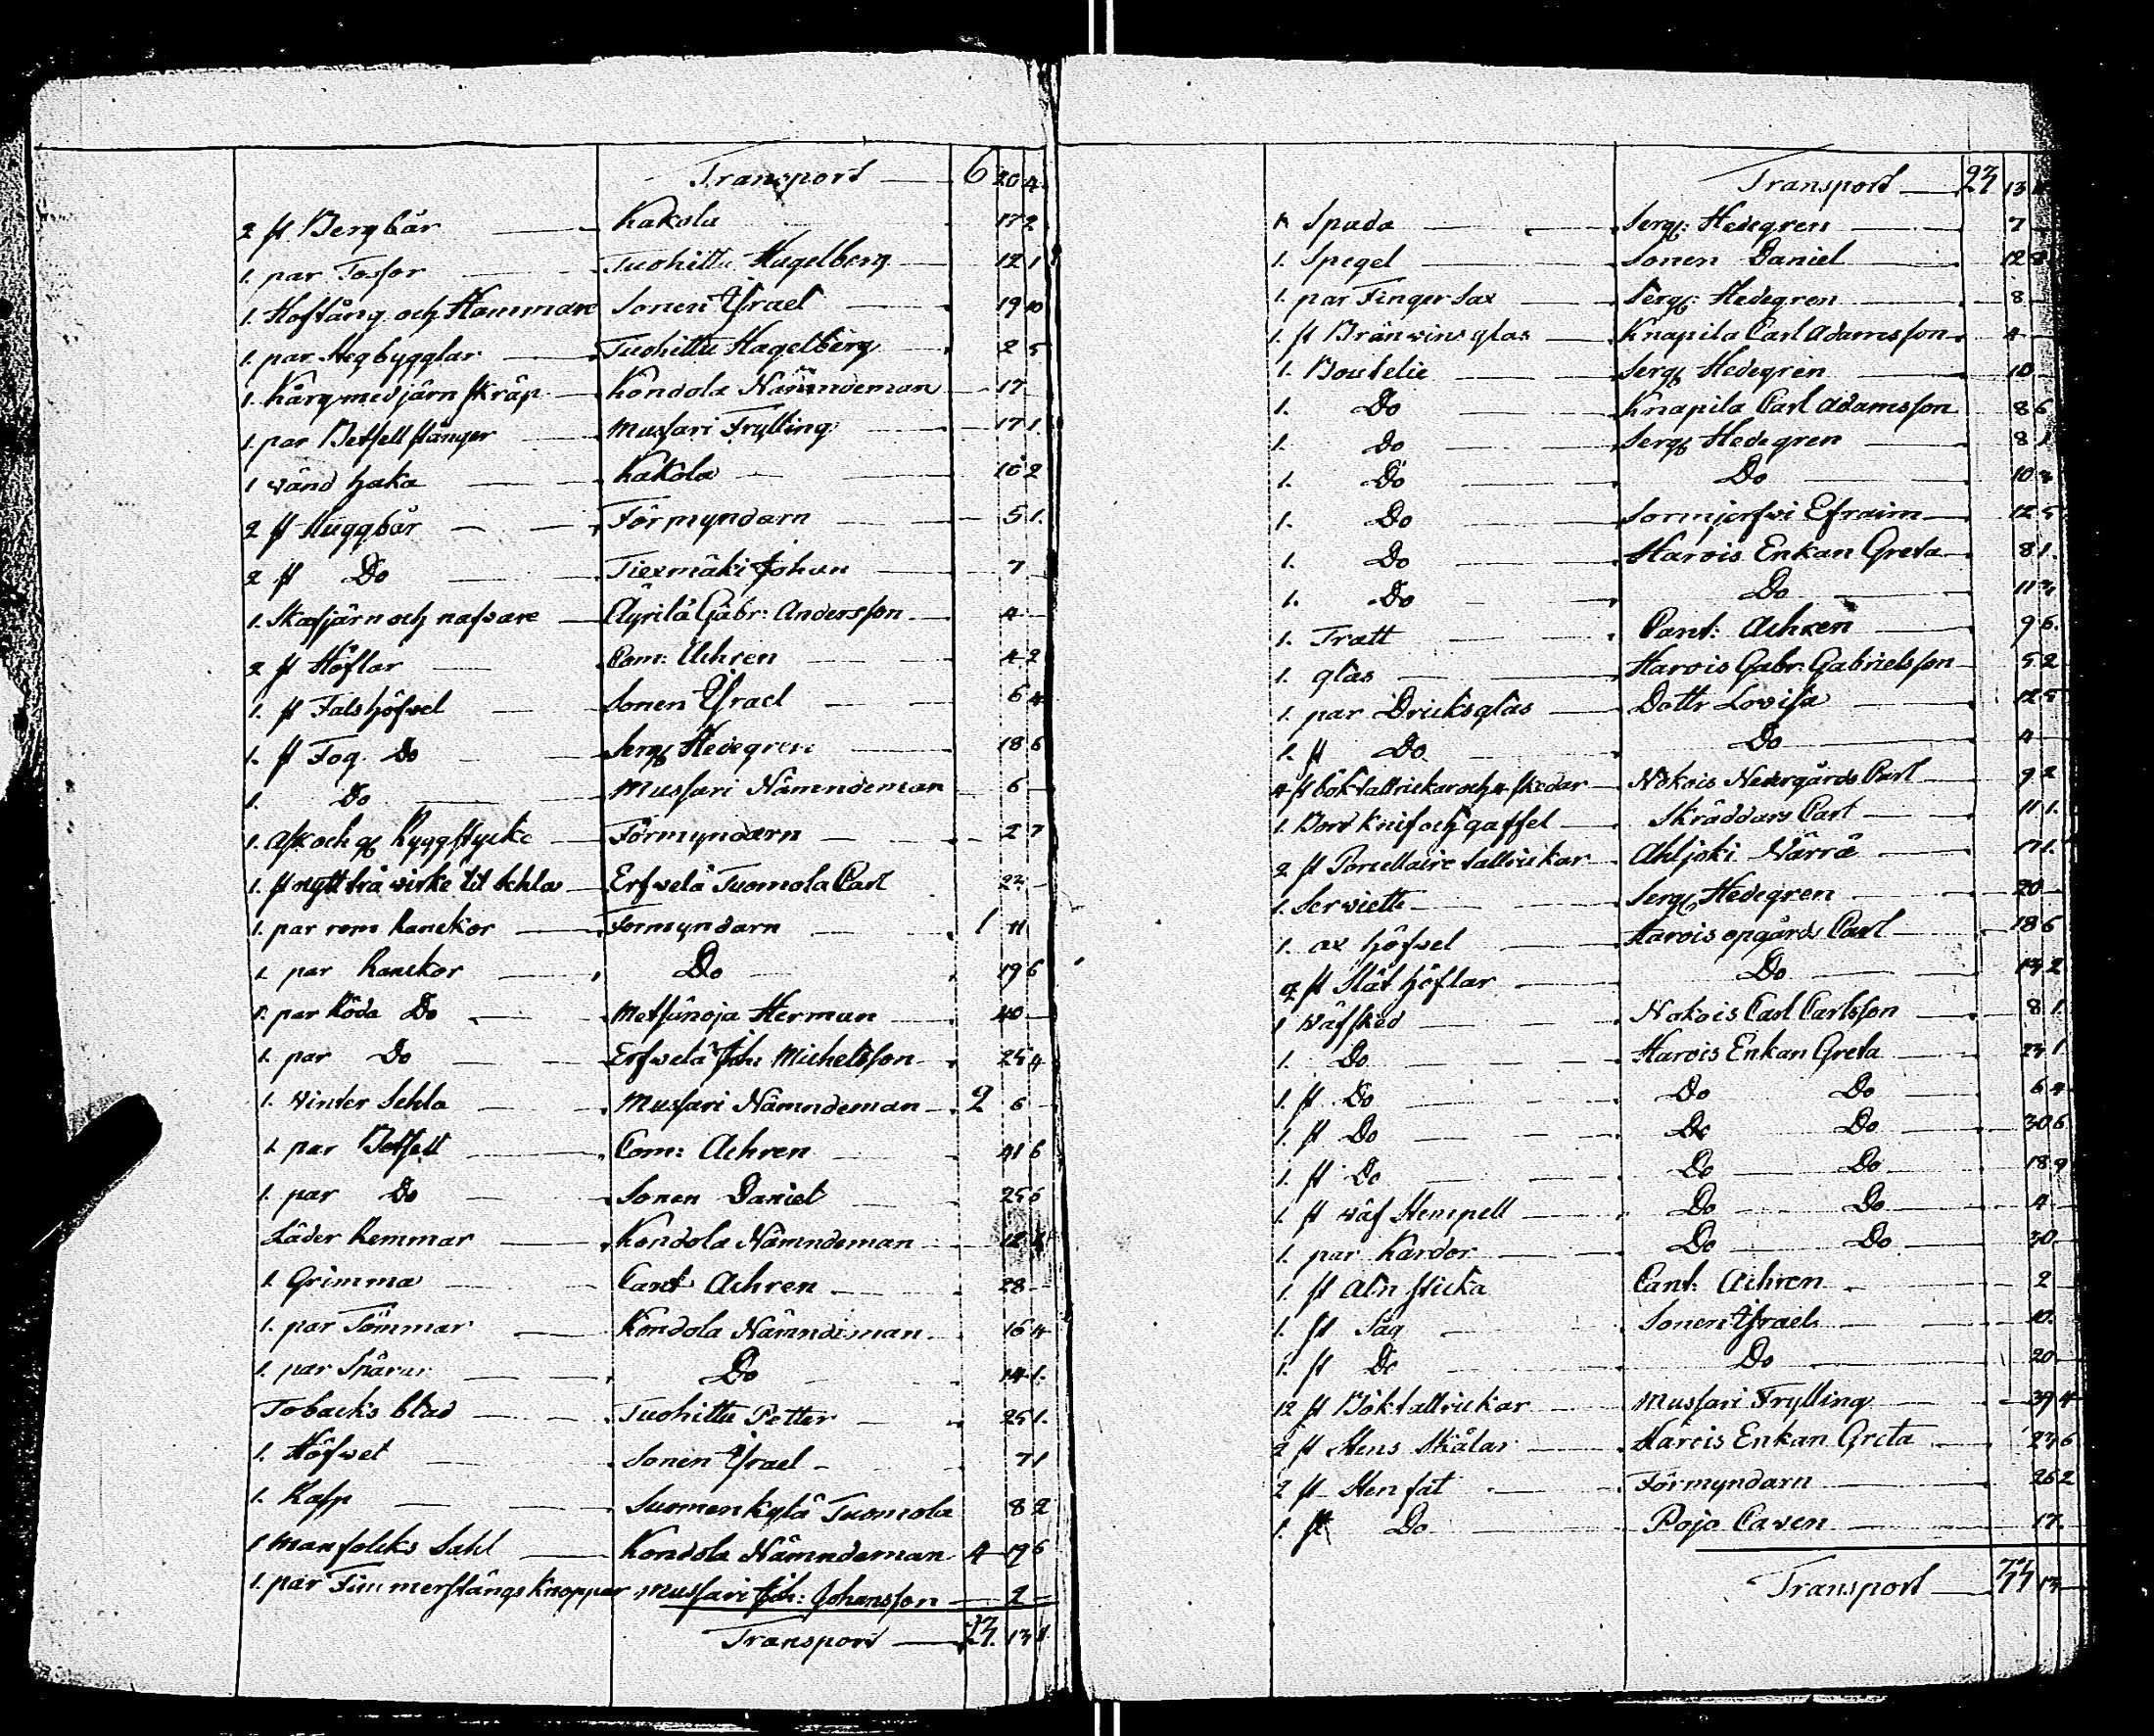 Transport 6 20 4
2 st Bergbår Kakola 17 2
1. par Tossor Tuohittu Hagelberg 12 1
1. Hoftång och Hammare Sonen Israel 19 10
1. par Stegbygglar Tuohittu Hagelberg 2 5
1. Kårg med järn skräp Kondola Nämndeman 17
1. par Betsell stänger Mussari Frylling 17 1.
1 vänd haka Kakola 10 2
2 st Huggbår Förmyndarn 5 1.
2 st Do Tiexmäki Johan 7
1. Skafjärn och nafvare Äyrilä Gabr: Andersson 4
2 st Höflar Com: Achren 4 2
1. st Falshöfvel Sonen Israel 6 4
1. st Fog Do Serg Hedegren 18 6
1. Do Mussari Nämndeman 6
1. Ask och Ryggstycke Förmyndarn 2 7
1. st nytt trä virke til Schla Erfvelä Tuomola Carl 22
1. par rem Ranckor Formyndarn 1 11
1. par Ranckor Do 19 6
1. par Röda Do Metsünoja Herman 40
1. par Do Erfvelä Joh: Michelsson 25 4
1. Vinter Schla Mussari Nämndeman 2 6
1. par Betsell Com: Achren 41 6
1. par Do Sonen Daniel 25 6
Läder Remmar Kondola Nämndeman 12 4
1. Grimma Cant Achren 28
1. par Tömmar Kondola Nämndeman 16 4
1. par Do 14 1.
Tobacks blad Tuohittu Petter 25 1.
1. Höfvel Sonen Israel 7 1
1. Kasp Suomenkylä Tuomola 8 2
1 Manfolcks Sahl Kondola Nämndeman 4 19 6
1. par Fimmerstångs Knoppar Mussari Joh: Johansson 2
Transport 23. 13 1
Transport 23 13
1 Spada Serg: Hedegren 7
1. Spegel Sonen Daniel 12 8
1. par Finger Sax Serg: Hedegren 8
1. st Bränvins glas Knapila Carl Adamsson 4
1. Boutelie Serg Hedegren 10
1. Do Knapila Carl Adamsson 8 6
1. Do Serg Hedegren 8 1
1. Do Do 10
1. Do Sormjerfvi Efraim 12 5
1. Do Harois Enkan Greta 8 1.
1. Do Do 11
1. Tratt Cant: Achren 9 6.
1. glas Harois Gabr: Gabrielsson 5 2
1. par Dricksglas Dottr Lovisa 12 5
1. st Do Do 4
4 st böktallrickar och 4 skedar Nokois Nedergårds Carl 9 2
1. Bord Knif och gaffel Skräddars Carl 11 1.
2 st Porcellaire tallrickar Ahljoki Närrä 17 1.
1. Serviette Serg Hedegren 20
1. ax höfvel Harois opgårds Carl 18 6
2 st Slät höflar Do 13 2
1 Väfsked Nokois Carl Carlsson 8 1.
1. Do Harois Enkan Greta 23 1
1. st Do Do Do 6 4
1. st Do Do Do 30 6
1. st Do Do Do 18 9
1. st väf Stempell Do Do 4
1. par Kardor Do Do 30.
1. st Aln sticka Cant: Achren 2
1. st Såg Sonen Israel 10.
1. st Do Do 20
12 st Böktallrickar Mussari Frylling 39 4
2 st Stens Skålar Harois Enkan Greta 23 6
2 st Sten fat Förmyndarn 26 2
1. st Do Pojo Caven 17.
Transport 33 13